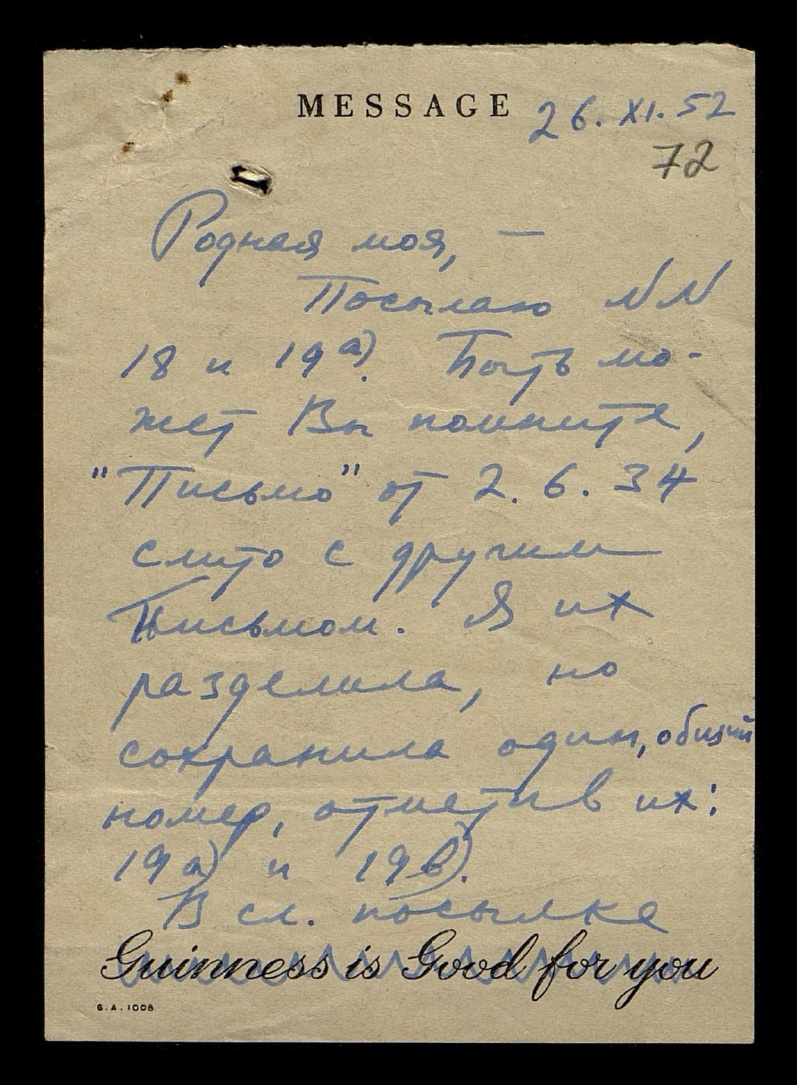 MESSAGE 26. XI. 52
72
Родная моя, —
Посылаю NN
18 и 19а). Быть мо-
жет Вы помните,
"Письмо" от 2. 6. 34
слито с другим
письмом. Я их
разделила, но
сохранила один, общий
номер, отметив их:
19а) и 19в).
В сл. посылке
Guinness is Good for you
G.A.1008